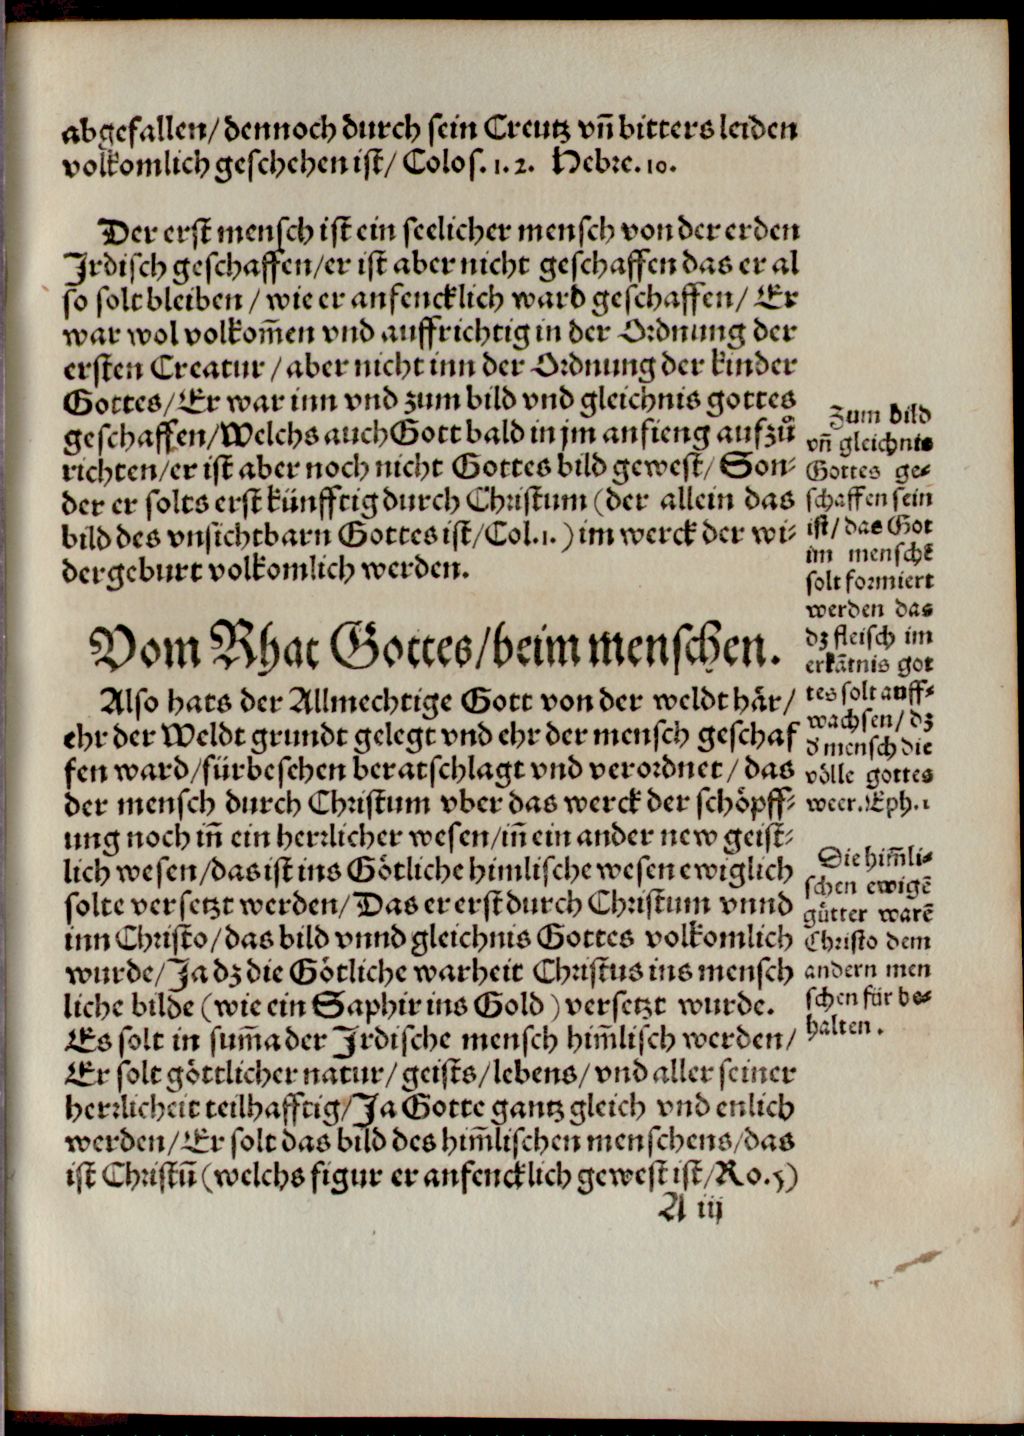 abgefallen/ dennoch durch sein Creutz vn̄ bitters leiden
volkomlich geschehen ist/ Colos. 1. 2. Hebre. 10.
Der erst mensch ist ein seelicher mensch von der erden
Jrdisch geschaffen/ er ist aber nicht geschaffen das er al
so solt bleiben / wie er anfencklich ward geschaffen/ Er
war wol volkom̄en vnd auffrichtig in der Ordnung der
ersten Creatur / aber nicht inn der Ordnung der kinder
Gottes/ Er war inn vnd zum bild vnd gleichnis gottes
geschaffen/ Welchs auch Gott bald in jm anfieng aufzů
richten/ er ist aber noch nicht Gottes bild gewest/ Son-
der er solts erst künfftig durch Christum (der allein das
bild des vnsichtbarn Gottes ist/ Col. 1. ) im werck der wi-
dergeburt volkomlich werden.
Vom Rhat Gottes/ beim menschen.
Also hats der Allmechtige Gott von der weldt här/
ehr der Weldt grundt gelegt vnd ehr der mensch geschaf
fen ward/ fürbesehen beratschlagt vnd verordnet / das
der mensch durch Christum vber das werck der schöpff-
ung noch in̄ ein herrlicher wesen/ in̄ ein ander new geist-
lich wesen/ das ist ins Götliche himlische wesen ewiglich
solte versetzt werden/ Das er erst durch Christum vnnd
inn Christo/ das bild vnnd gleichnis Gottes volkomlich
wurde/ Ja dz die Götliche warheit Christus ins mensch
liche bilde (wie ein Saphir ins Gold ) versetzt wurde.
Es solt in sum̄a der Jrdische mensch him̄lisch werden/
Er solt göttlicher natur/ geists/ lebens/ vnd aller seiner
herrlicheit teilhafftig/ Ja Gotte gantz gleich vnd enlich
werden/ Er solt das bild des him̄lischen menschens/ das
ist Christū (welchs figur er anfencklich gewest ist/ Ro. 5)
A iij
Zum bild
vn̄ gleichnis
Gottes ge-
schaffen sein
ist/ das Got
im menschē
solt formiert
werden das
dz fleisch im
erkātnis got
tes solt auff-
wachsen/ dz
d̄ mensch die
völle gottes
weer. Eph. 1
Die him̄li-
schen ewigē
gütter warē
Christo dem
andern men
schen für be-
halten.